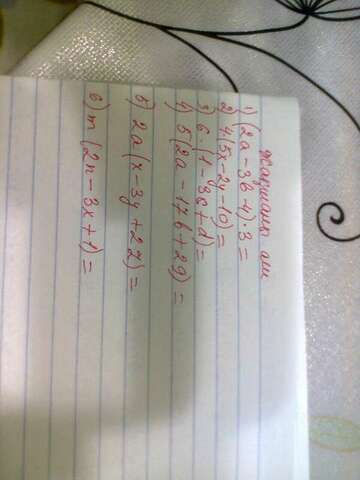 Жақшаны аш
1) (2a - 3b - 4) · 3 =
2) 4(5x - 2y - 10) =
3) 6 · (1 - 3c + d) =
4) 5(2a - 17b + 29) =
5) 2a (x - 3y + 2z) =
6) m (2n - 3x + 1) =